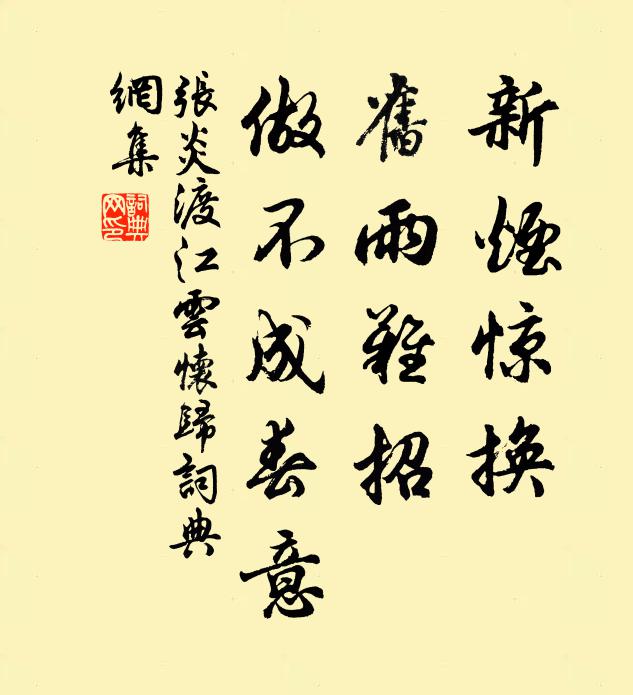 新煙惊換
舊雨難招
做不成春意
張炎渡江雲懷歸詞典
網集
詞典
网印